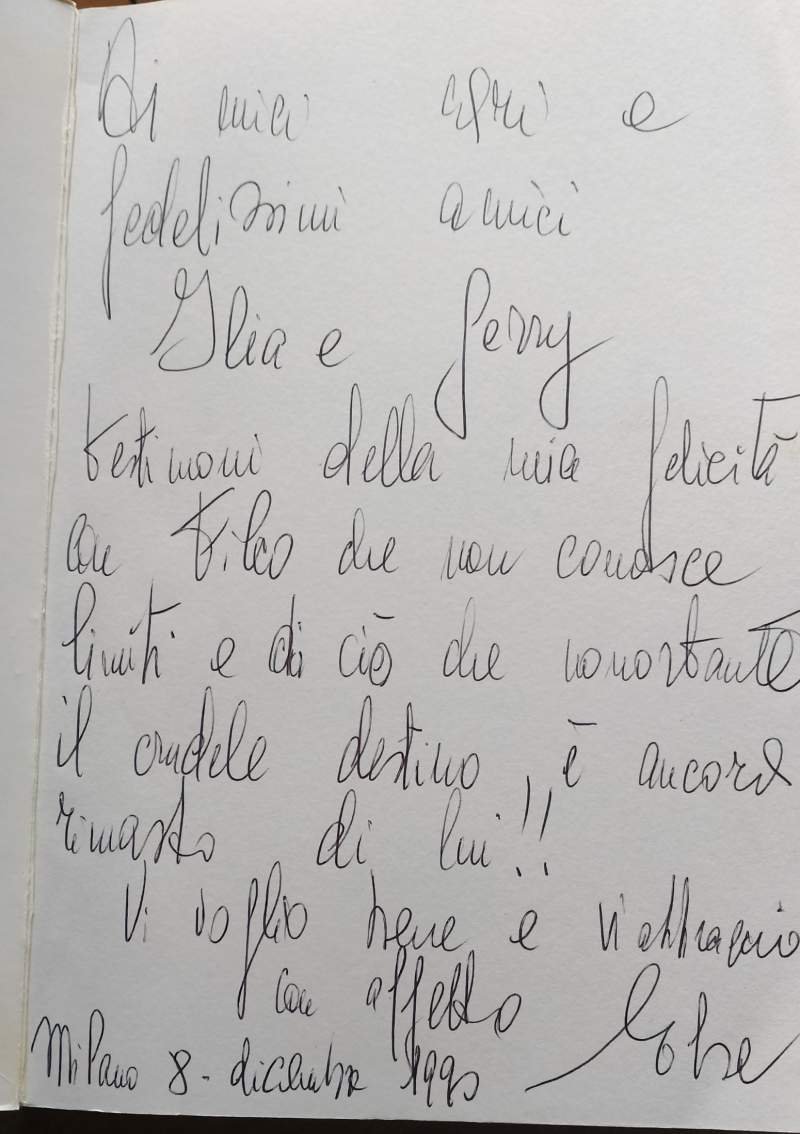 Ai miei cari e
fedelissimi amici
Ilia e Gerry
testimoni della mia felicità
con che non conosce
limiti e di ciò che nonostante
il crudele destino, è ancora
rimasto di lui!!
Vi voglio bene e vi abbraccio
con affetto Ebe
Milano 8 - dicembre 1990